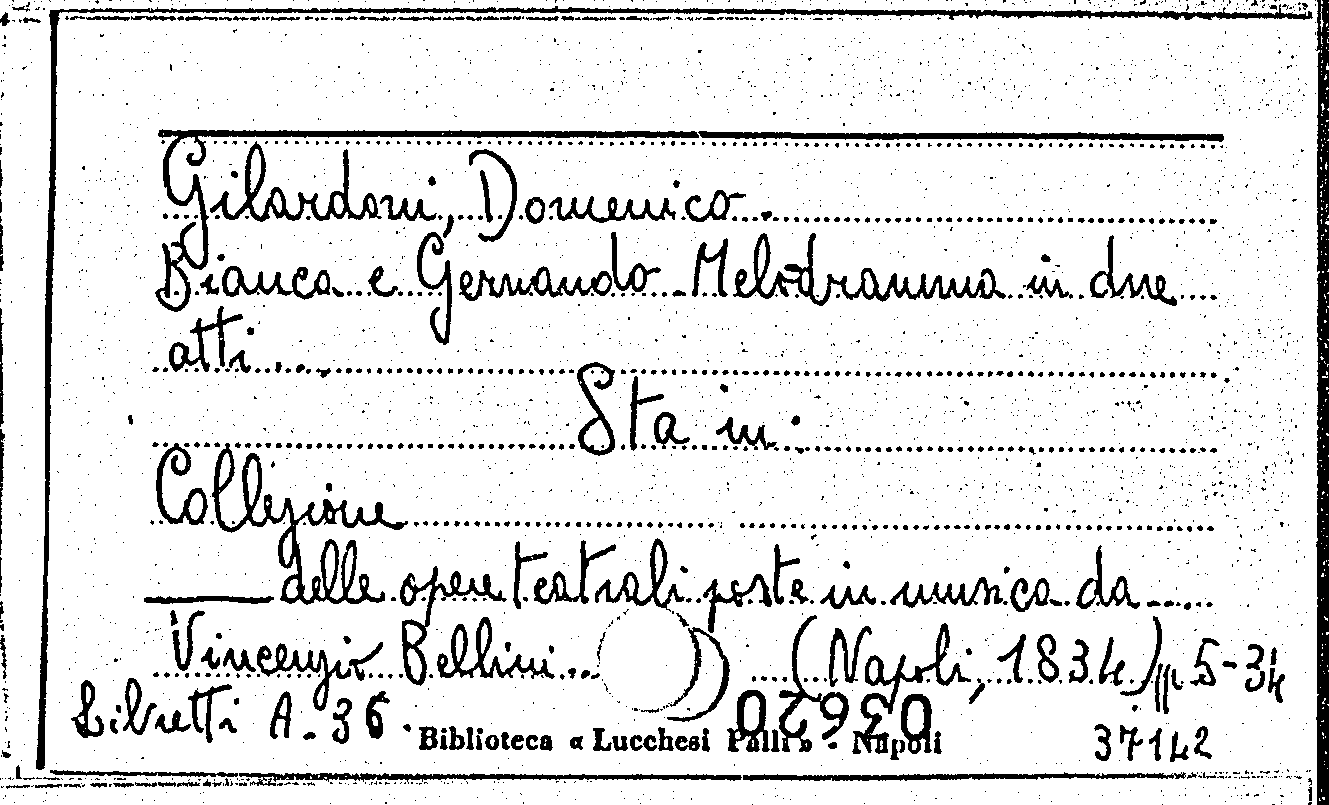 Gilardoni, Domenico.
Bianca e Gernando. Melodramma in due
atti....
Sta in:
Collezione
—— delle opere teatrali poste in musica da.....
Vincenzio Bellini... (Napoli, 1834) pp. 5-34
Libretti A.36.
Biblioteca « Lucchesi Palli » - Napoli
03620
37142